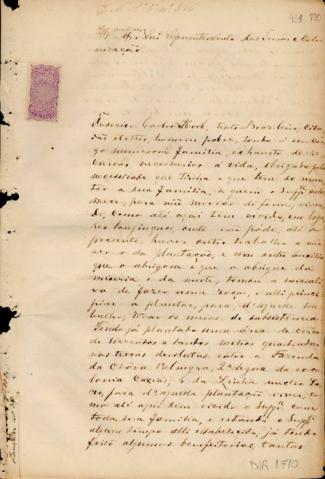 Illmo. Snr. Superintendente das Terras e Colo-
nisação.
Frederico Carlos, Brazileiro, Cida-
dão eleitor, homem pobre, tendo a seu car-
go numerosa familia, exhausto de re-
cursos necessarios á vida, obrigado pela
necessidade que tinha e que tem de man-
ter a sua familia, a quem o Suppe.
para não morrer de fome, viven-
do, como até aqui tem vivido, em luga-
res longinquos, onde não póde, até o
presente, haver outro trabalho a não
ser o da plantação, e sem outro auxilio
que o abrigasse e que o abrigue da
miseria e da morte, tomou a iniciati-
va de fazer uma roça, e alli princi-
piar a plantar, para, d'aquelle tra-
balho, tirar os meios de subsistencia.
Tendo já plantado uma área de cerca
de trezentos e tantos metros quadrados
nas terras devolutas entre a Fazenda
da Chóva Pelagra, 2ª legoa da co-
lonia Caxias, e da Linha
para d'aquella plantação viver, co-
mo até aqui tem vivido o Suppe. com
toda sua familia, e estando o Suppe.
algum tempo alli estabelecido, já tendo
feito algumas bemfeitorias, tantas
DIR 1710